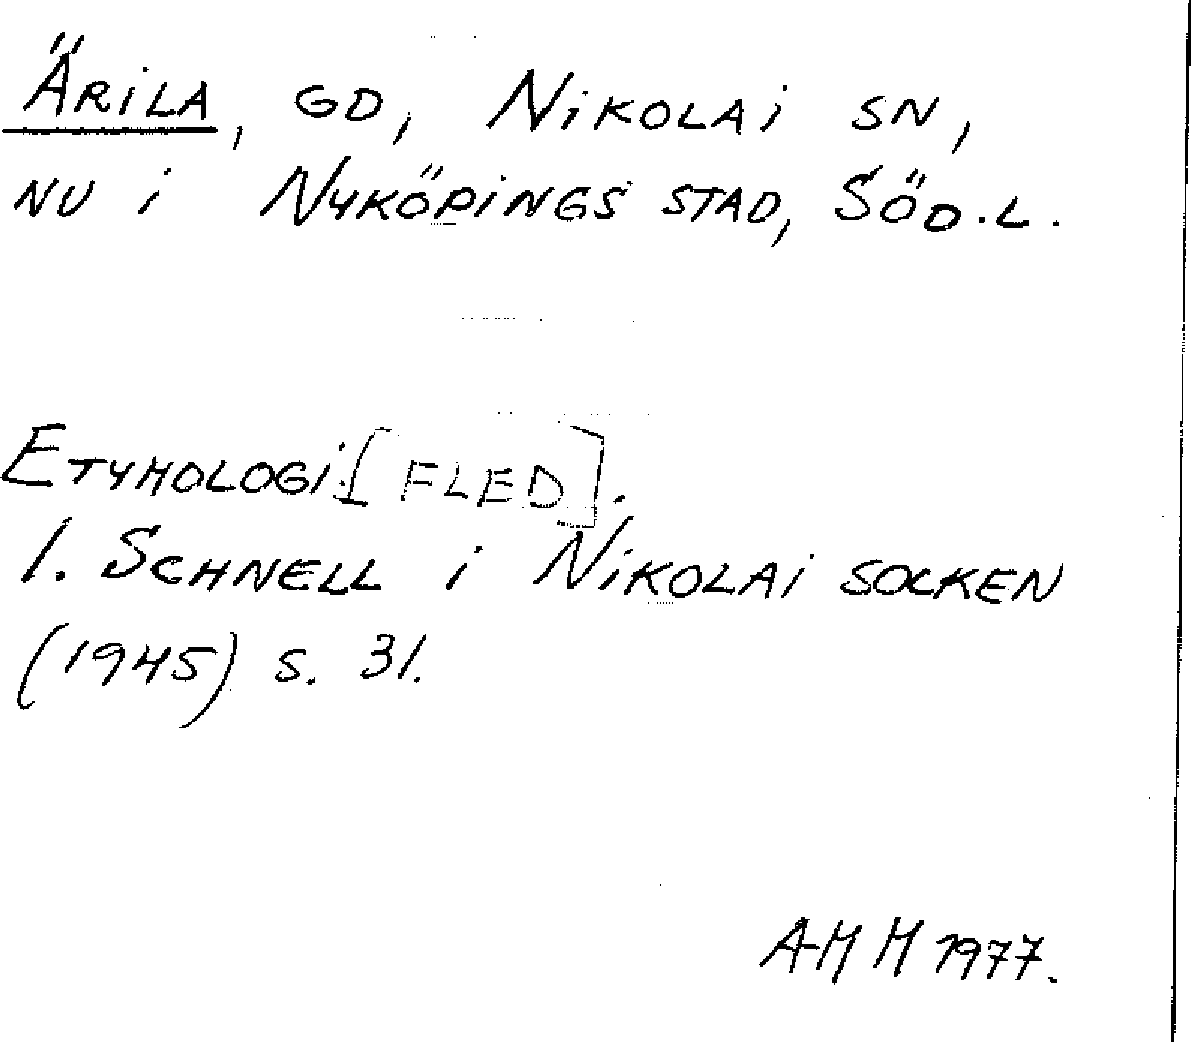 Ärila, gd, Nikolai sn,
nu i Nyköpings stad, Söd.l.
Etymologi: [FLED].
I. Schnell i Nikolai socken
(1945) s. 31.
A-M M 1977.